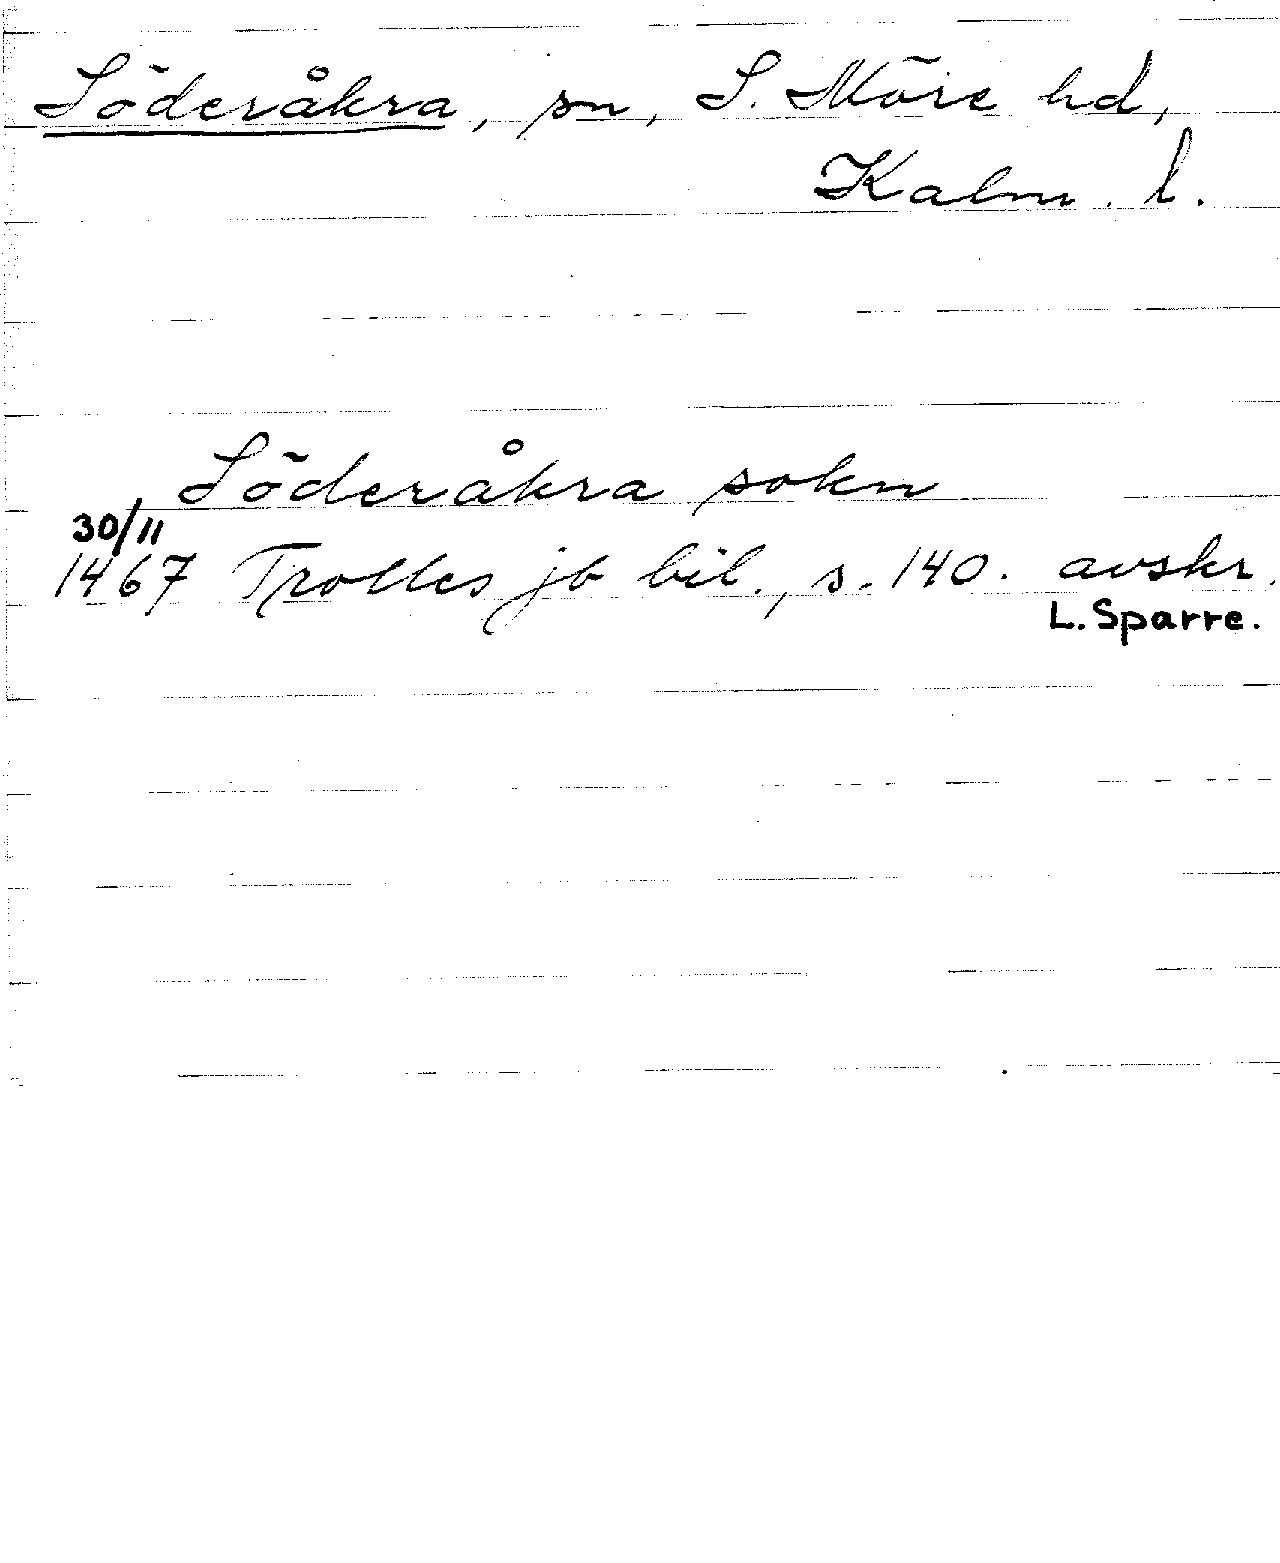 Söderåkra, sn, S. Möre hd,
Kalm. l.
Söderåkra sokn
30/11
1467 Trolles jb bil., s. 140. avskr.
L. Sparre.